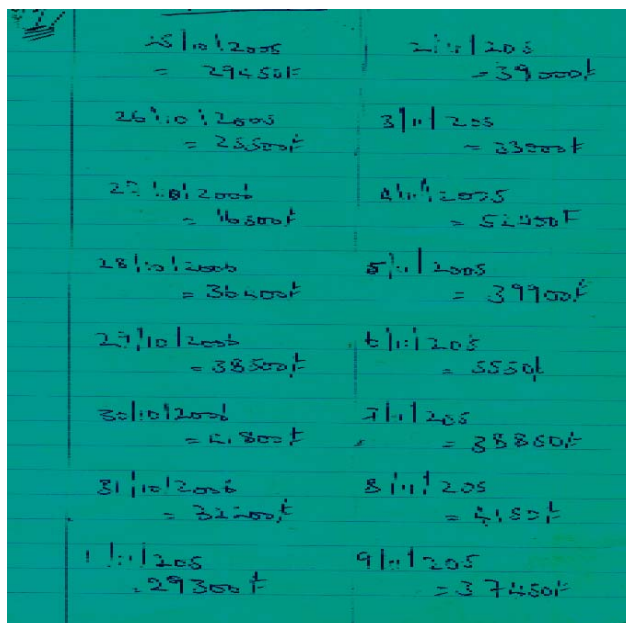 25/10/2005
= 29450F
26/10/2005
= 25500F
27/10/2006
= 16500F
28/10/2006
= 36400F
29/10/2006
= 38500F
30/10/2006
= 41800F
31/10/2006
= 32200F
1/11/205
= 29300F
2/11/205
= 39000F
3/11/205
= 33000F
4/11/2005
= 52450F
5/11/2005
= 39900F
6/11/205
= 5550F
7/11/205
= 38850F
8/11/205
9/11/205
= 37450F